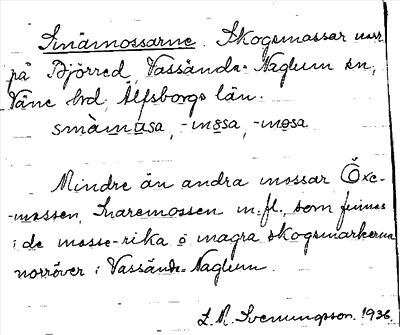 Småmossarne. Skogsmossar norr
på Björred, Vassända-Naglum sn,
Väne hd, Älfsborgs län.
småmåsa, -måsa, -måsa
Mindre än andra mossar Öxe-
-mossen, Snaremossen m.fl., som finnes
i de mosse-rika o magra skogsmarkerna
norröver i Vassända-Naglum.
L. R. Svenungsson. 1936.